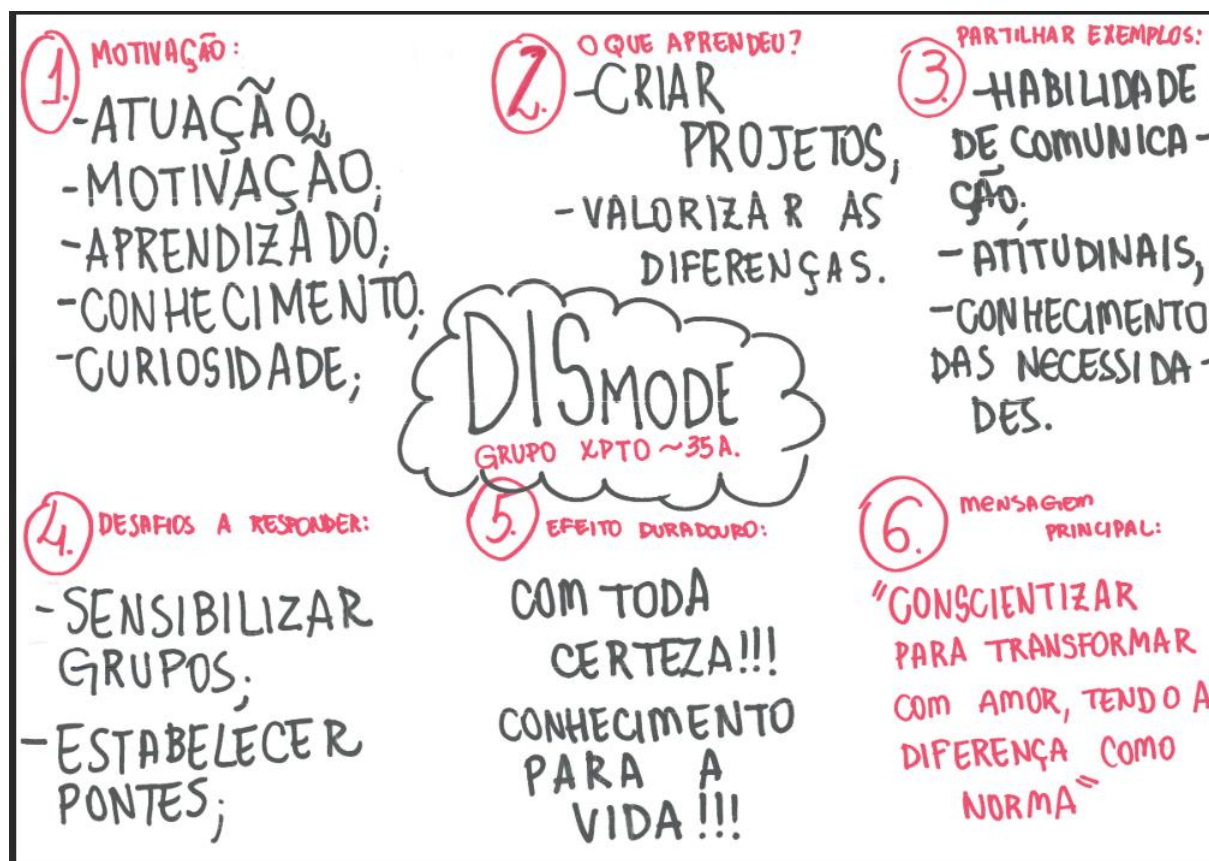 1. MOTIVAÇÃO:
-ATUAÇÃO;
-MOTIVAÇÃO;
-APRENDIZADO;
-CONHECIMENTO;
-CURIOSIDADE;
2. O QUE APRENDEU?
-CRIAR
PROJETOS,
-VALORIZAR AS
DIFERENÇAS.
3. PARTILHAR EXEMPLOS:
-HABILIDADE
DE COMUNICA-
ÇÃO;
-ATITUDINAIS,
-CONHECIMENTO
DAS NECESSIDA-
DES.
DISMODE
GRUPO XPTO ~35A.
4. DESAFIOS A RESPONDER:
-SENSIBILIZAR
GRUPOS;
-ESTABELECER
PONTES;
5. EFEITO DURADOURO:
COM TODA
CERTEZA!!!
CONHECIMENTO
PARA A
VIDA!!!
6. MENSAGEM
PRINCIPAL:
"CONSCIENTIZAR
PARA TRANSFORMAR
COM AMOR, TENDO A
DIFERENÇA COMO
NORMA"